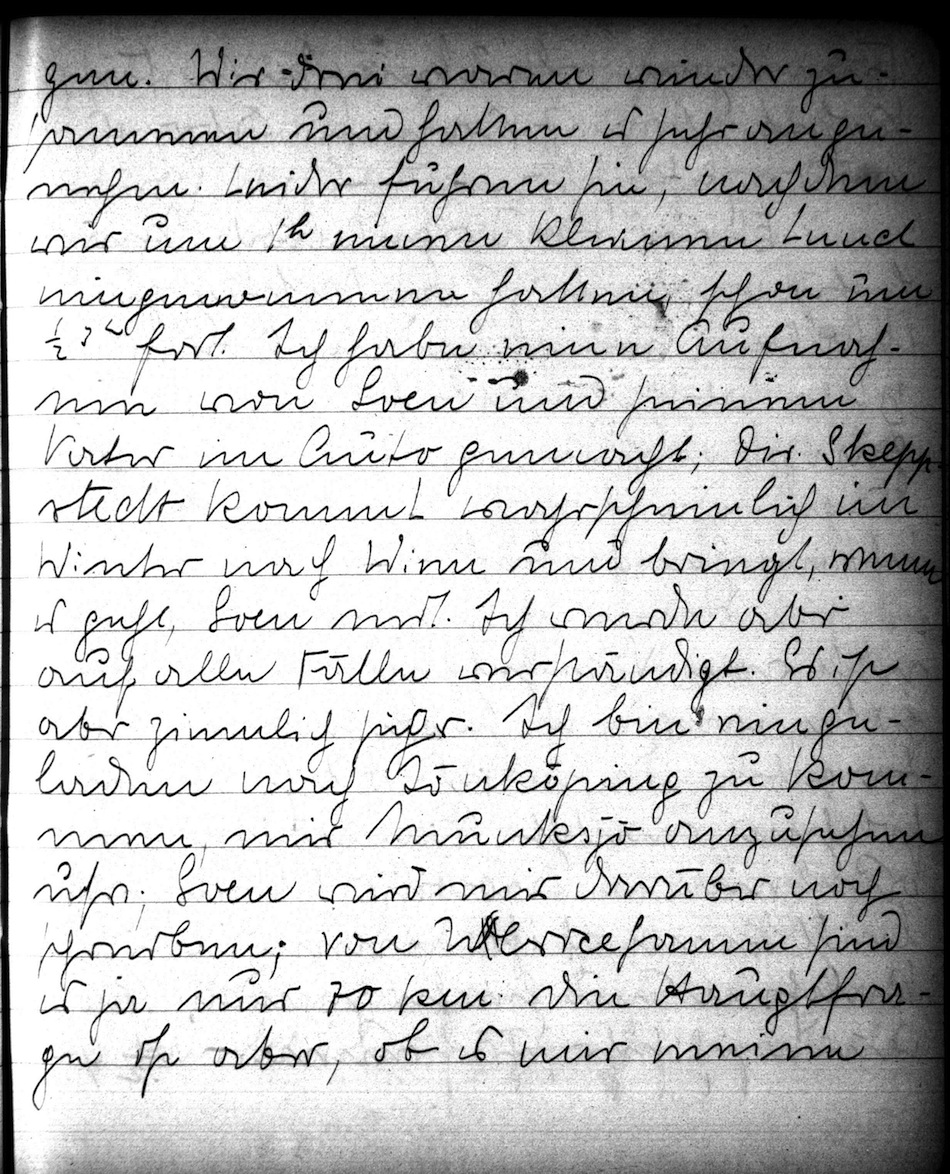 gen. Wir drei waren wieder zu-
sammen und hatten es sehr ange-
nehm. Leider fuhren sie, nachdem
wir um 1h einen kleinen Lunch
eingenommen hatten, schon um
½ 3h fort. Ich habe eine Aufnah-
me von Sven und seinem
Vater im Auto gemacht; Dir. Skepp-
stedt kommt wahrscheinlich im
Winter nach Wien und bringt, wenn
es geht, Sven mit. Ich werde aber
auf alle Fälle verständigt. Es ist
aber ziemlich sicher. Ich bin einge-
laden nach Jönköping zu kom-
men, mir Munksjö anzusehen
usw; Sven wird mir darüber noch
schreiben; von Ulricehamn sind
es ja nur 70 km. Die Hauptfra-
ge ist aber, ob es mir meine